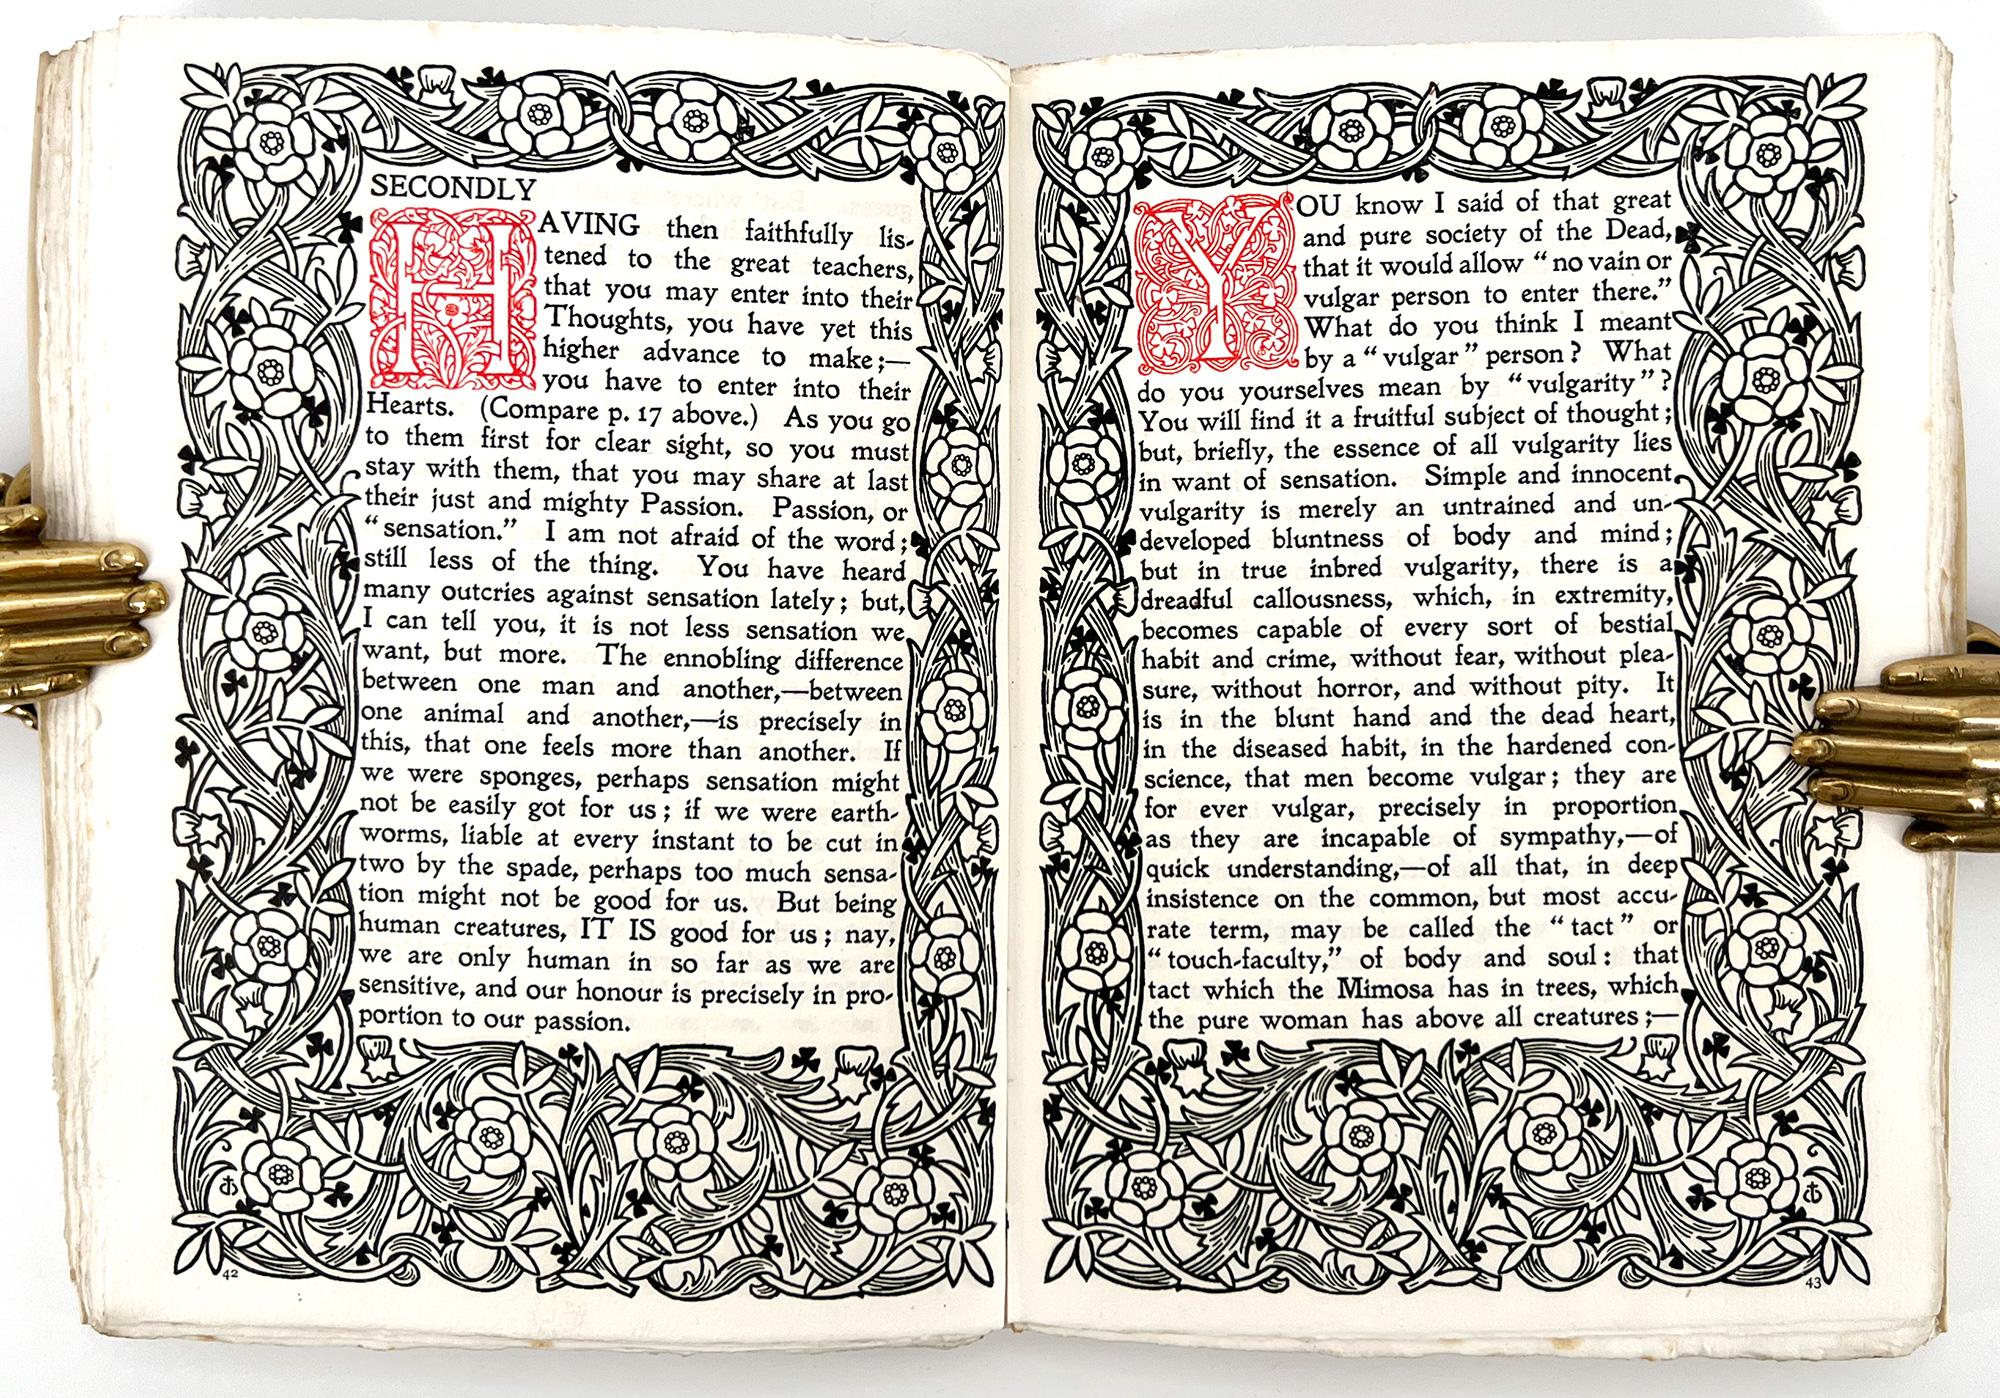 SECONDLY
HAVING then faithfully lis-
tened to the great teachers,
that you may enter into their
Thoughts, you have yet this
higher advance to make;—
you have to enter into their
Hearts. (Compare p. 17 above.) As you go
to them first for clear sight, so you must
stay with them, that you may share at last
their just and mighty Passion. Passion, or
“sensation.” I am not afraid of the word;
still less of the thing. You have heard
many outcries against sensation lately; but,
I can tell you, it is not less sensation we
want, but more. The ennobling difference
between one man and another,—between
one animal and another,—is precisely in
this, that one feels more than another. If
we were sponges, perhaps sensation might
not be easily got for us; if we were earth-
worms, liable at every instant to be cut in
two by the spade, perhaps too much sensa-
tion might not be good for us. But being
human creatures, IT IS good for us; nay,
we are only human in so far as we are
sensitive, and our honour is precisely in pro-
portion to our passion.
42
YOU know I said of that great
and pure society of the Dead,
that it would allow “no vain or
vulgar person to enter there.”
What do you think I meant
by a “vulgar” person? What
do you yourselves mean by “vulgarity”?
You will find it a fruitful subject of thought;
but, briefly, the essence of all vulgarity lies
in want of sensation. Simple and innocent
vulgarity is merely an untrained and un-
developed bluntness of body and mind;
but in true inbred vulgarity, there is a
dreadful callousness, which, in extremity,
becomes capable of every sort of bestial
habit and crime, without fear, without plea-
sure, without horror, and without pity. It
is in the blunt hand and the dead heart,
in the diseased habit, in the hardened con-
science, that men become vulgar; they are
for ever vulgar, precisely in proportion
as they are incapable of sympathy,—of
quick understanding,—of all that, in deep
insistence on the common, but most accu-
rate term, may be called the “tact” or
“touch-faculty,” of body and soul: that
tact which the Mimosa has in trees, which
the pure woman has above all creatures;—
43